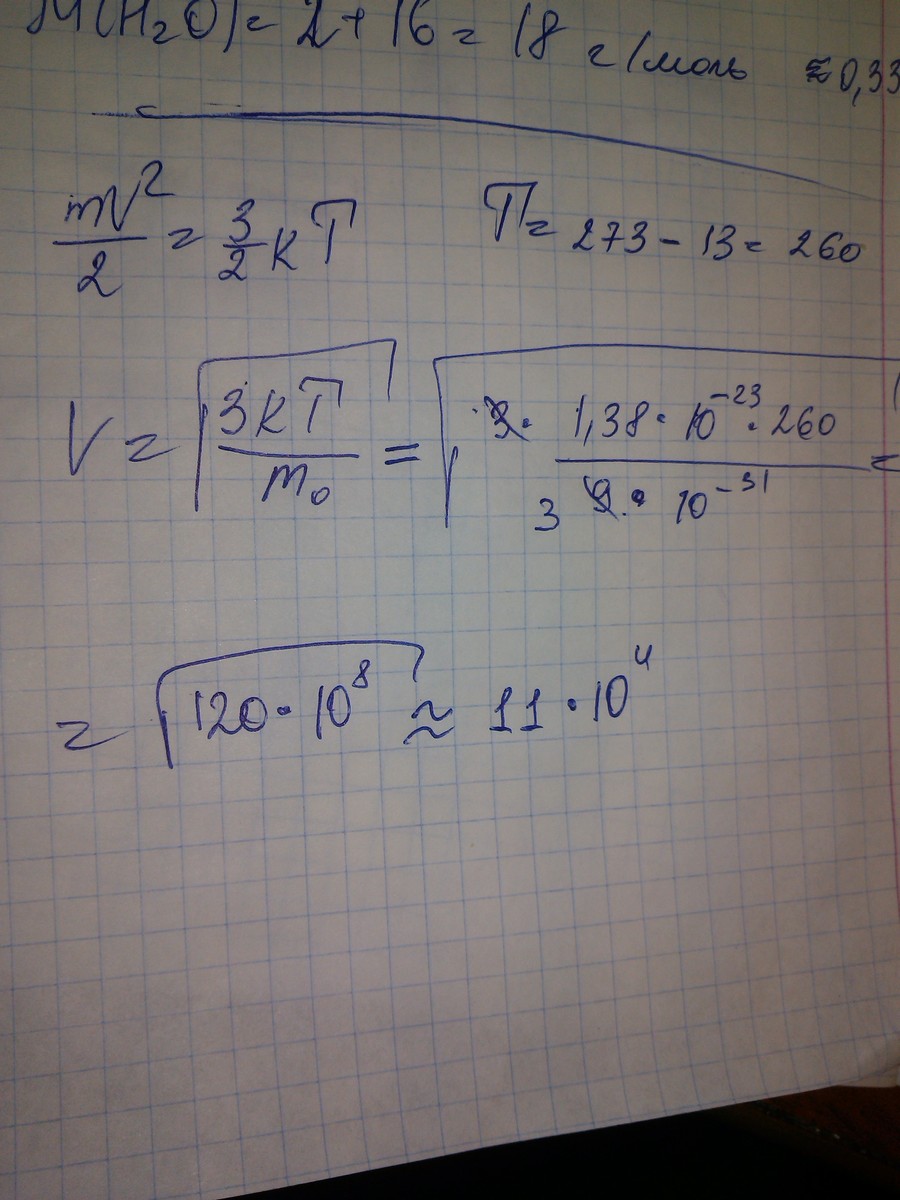 M(H₂O) = 2 + 16 = 18 г/моль ≈ 0,33
mV²/2 = 3/2 kT T = 273 - 13 = 260
V = √(3kT/m₀) = √(3 · 1,38 · 10⁻²³ · 260 / 3 9 · 10⁻³¹) =
= √(120 · 10⁸) ≈ 11 · 10⁴